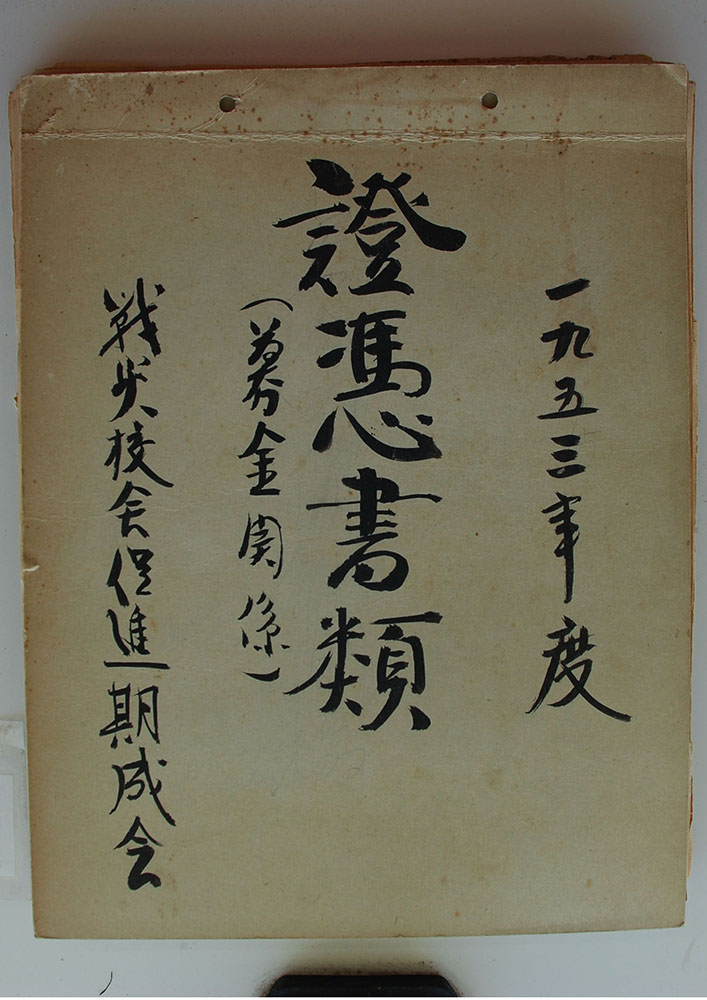 一九五三年度
證憑書類
(募金関係)
戦災校舎促進期成会